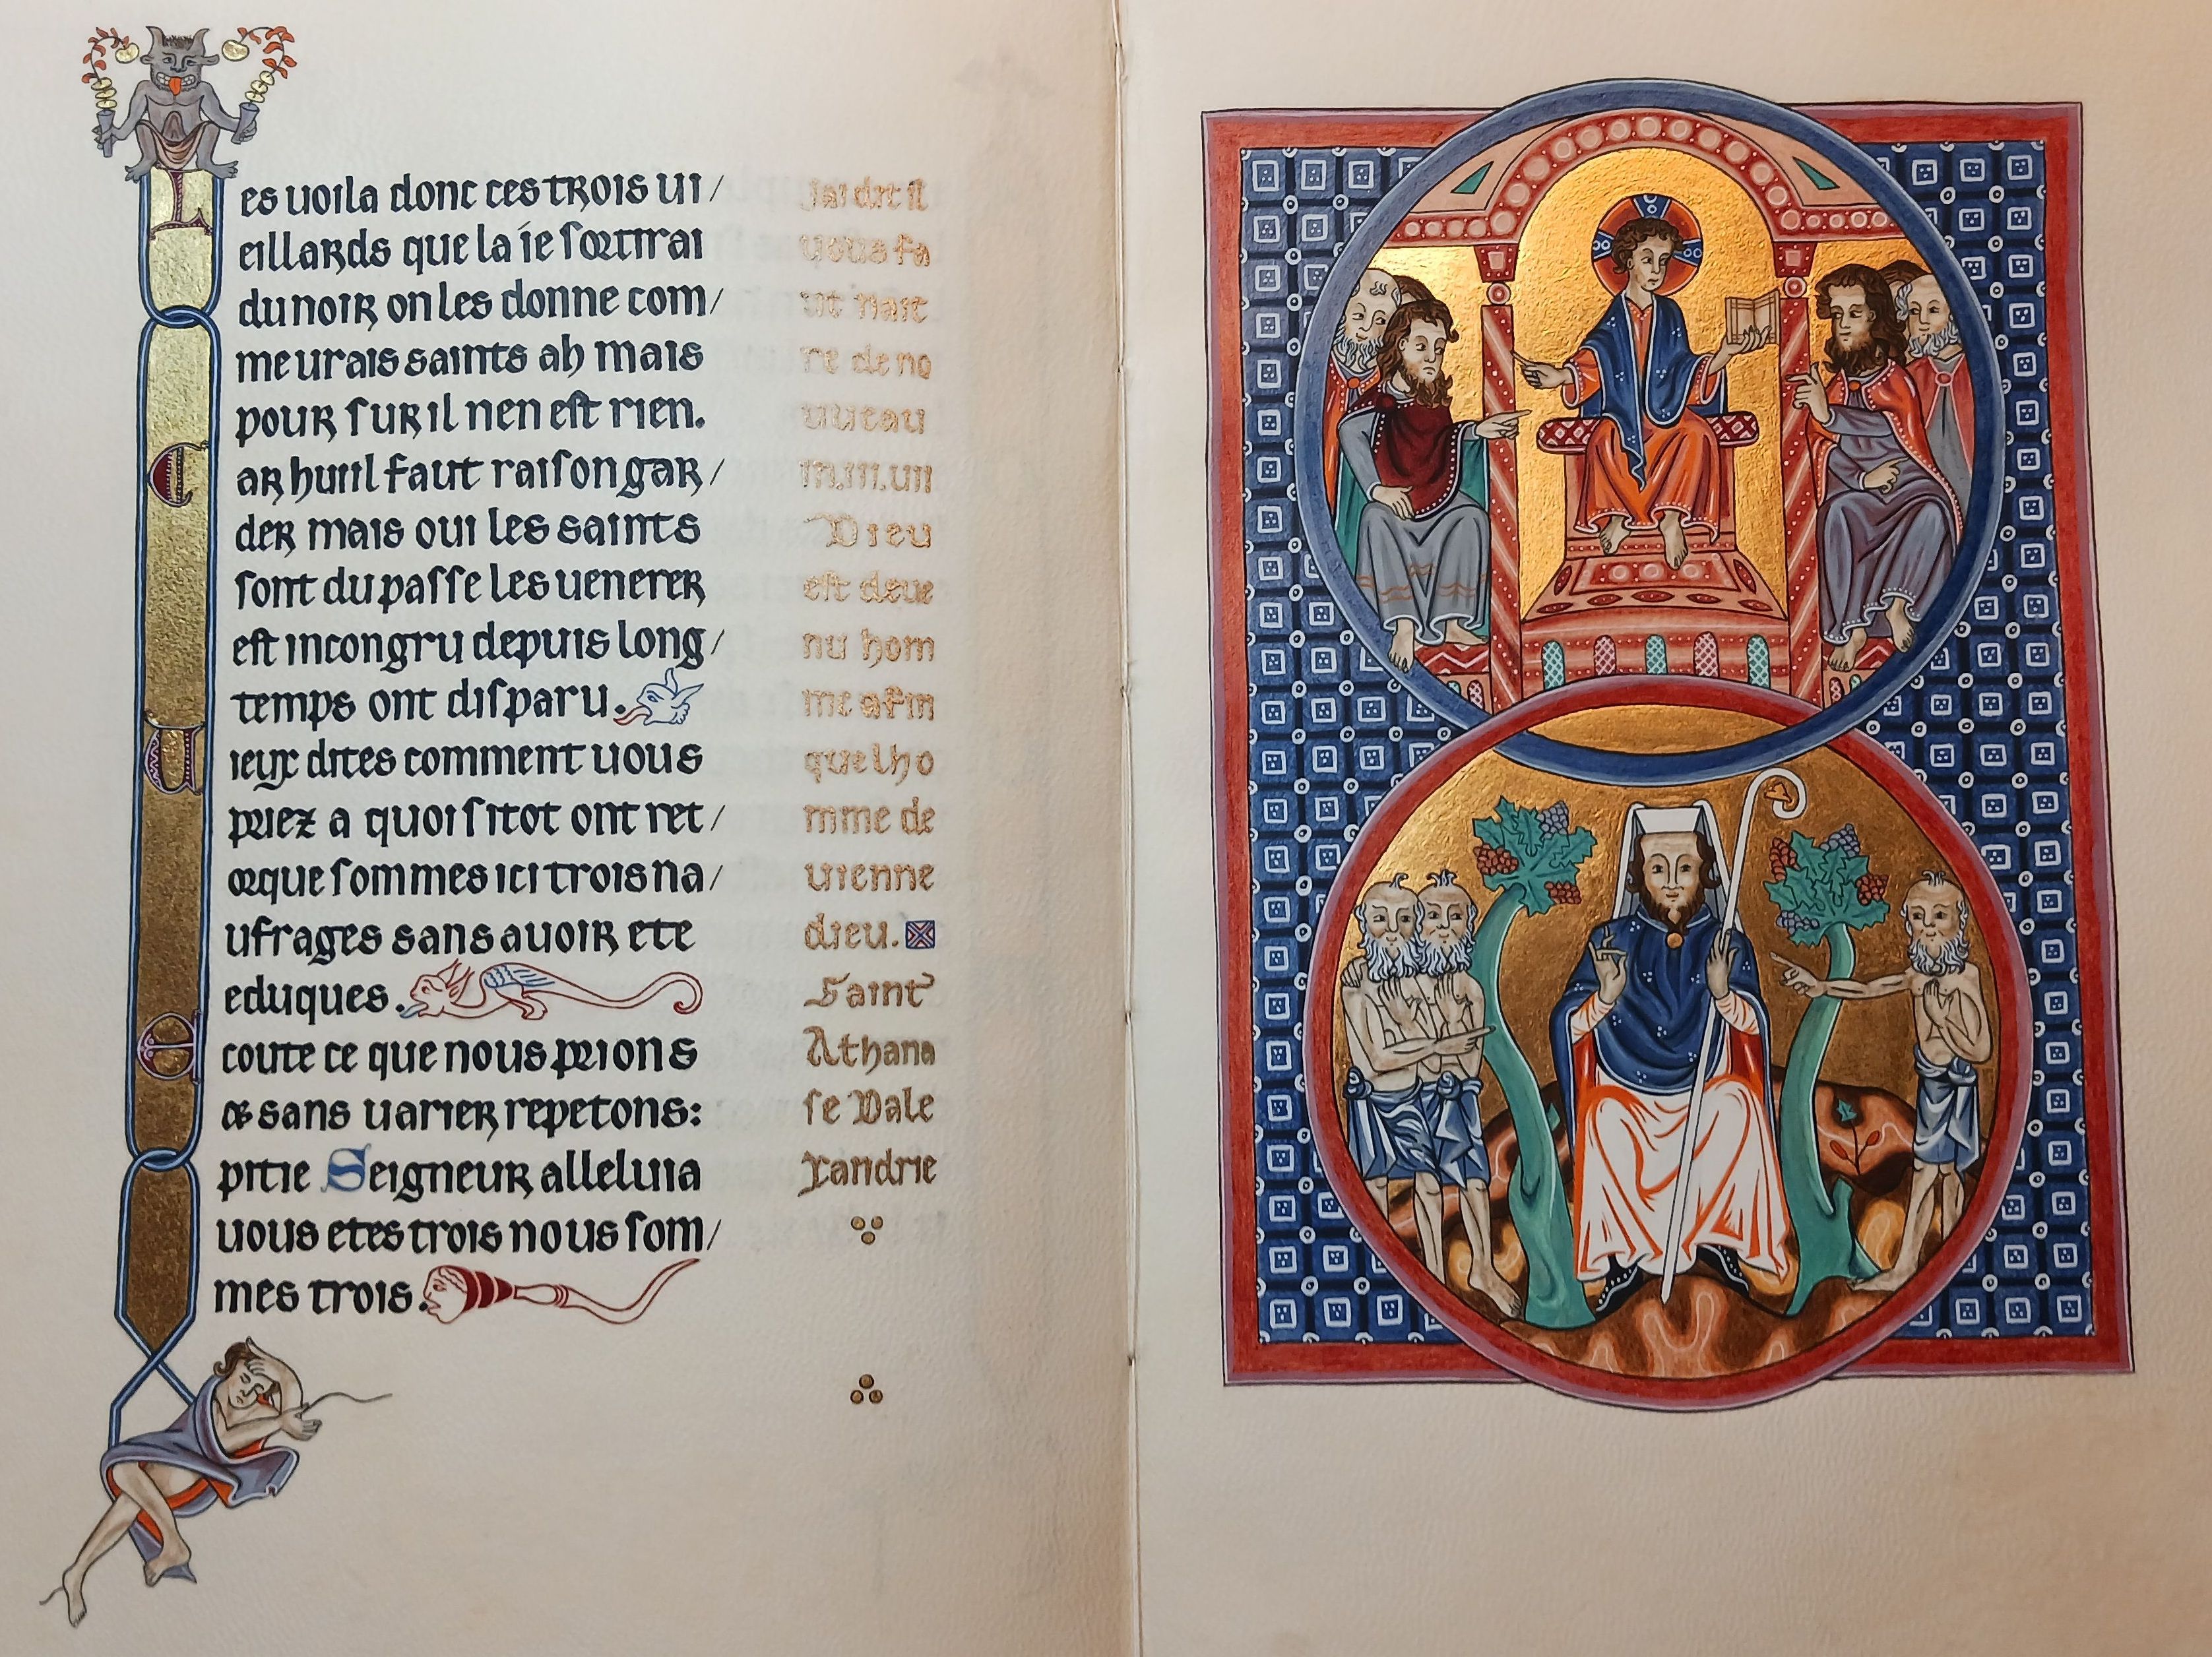 Les uoila donc ces trois ui/
eillards que la ie sortirai
du noir on les donne com/
me urais saints ah mais
pour sur il nen est rien.
Car huril faut raison gar/
der mais oui les saints
sont du passe les uenerer
est incongru depuis long/
temps ont disparu.
Uieux dites comment uous
priez a quoi sitot ont ret/
orque sommes ici trois na/
ufrages sans auoir ete
eduques.
Ecoute ce que nous prions
& sans uarier repetons:
pitie Seigneur alleluia
uous etes trois nous som/
mes trois.
Jai dit il
uous fa
ut nait
re de no
uueau
Dieu
est deue
nu hom
me afin
que lho
mme de
uienne
dieu.
Saint
Athana
se Dale
xandrie